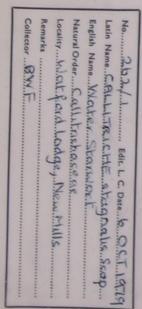 No. 262/1 Edit. L. C. Date 6 OCT 1979
Latin Name CALLITRICHE stagnalis Scop.
English Name Water Starwort
Natural Order Callitrichaceae
Locality Watford Lodge, New Mills
Remarks
Collector B.W.F.